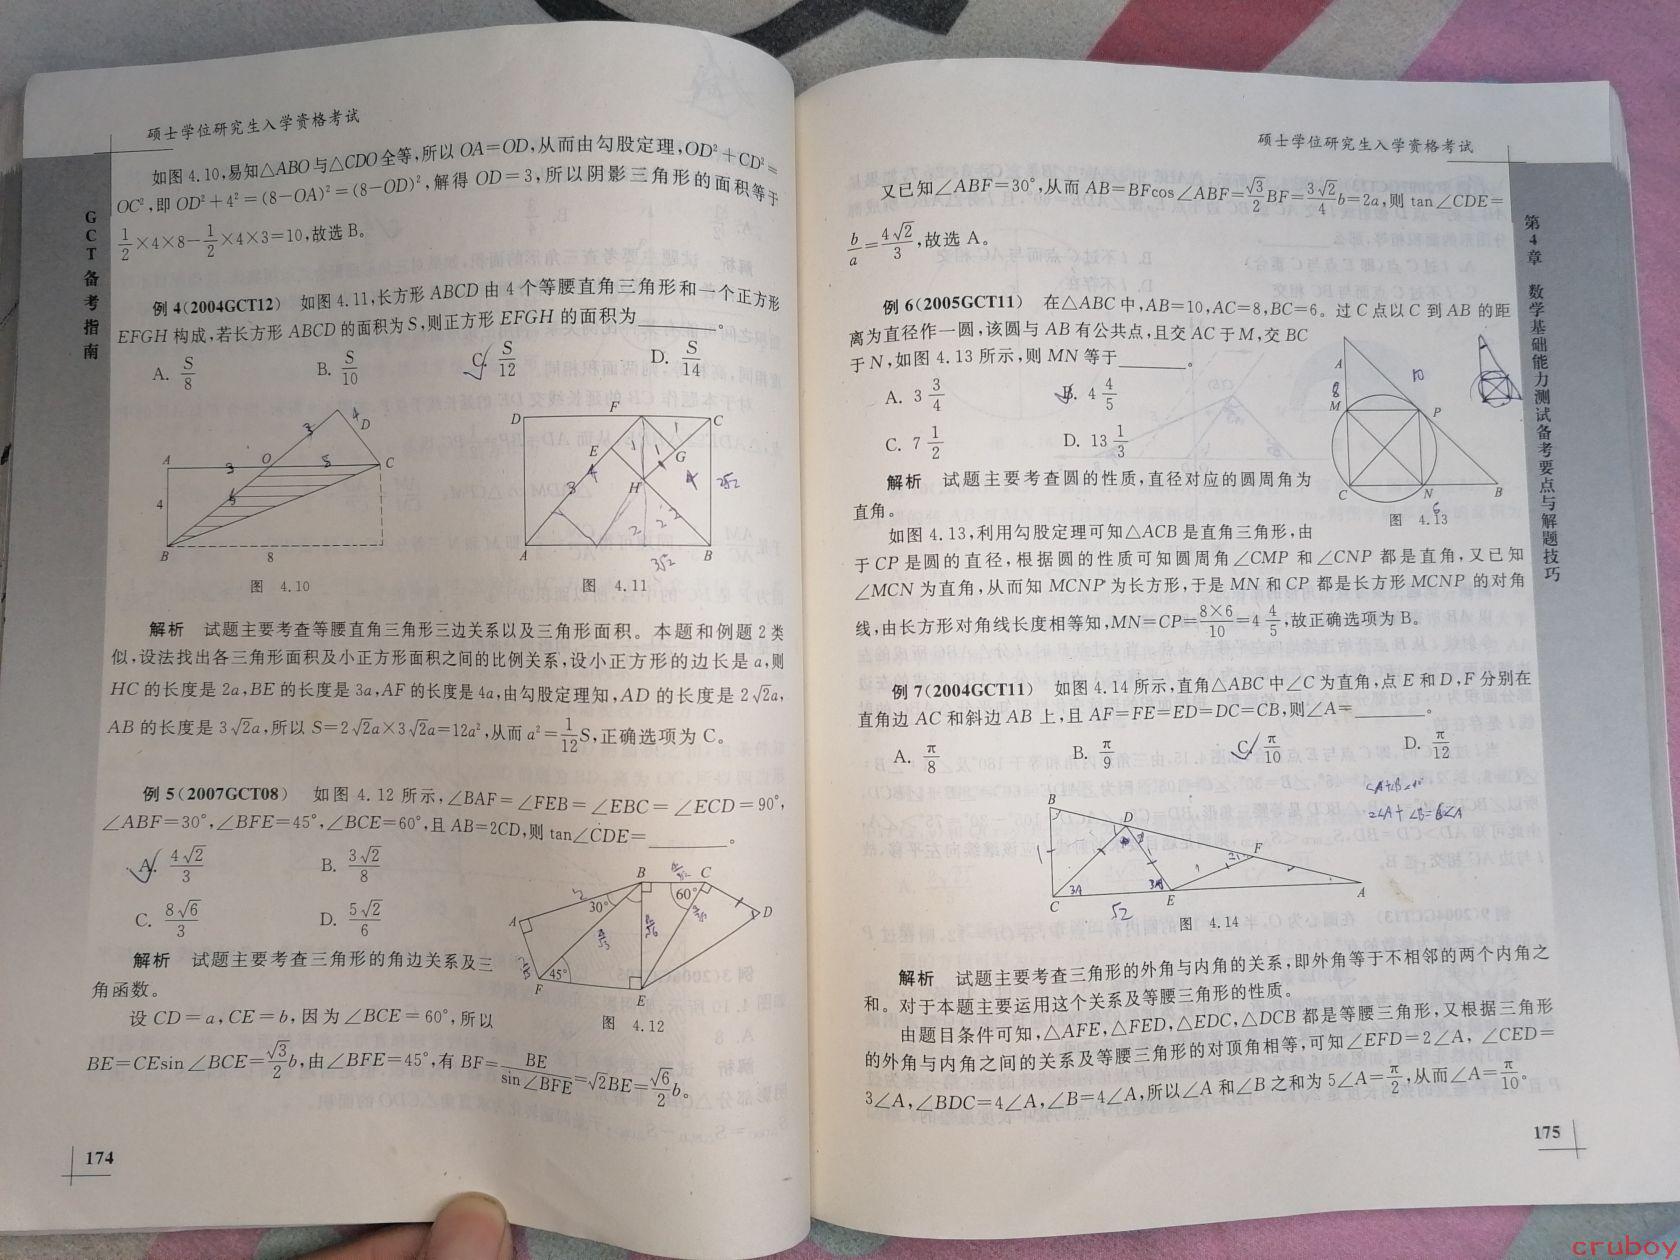 硕士学位研究生入学资格考试
GCT备考指南
如图4.10,易知△ABO与△CDO全等,所以OA=OD,从而由勾股定理,OD²+CD²=
OC²,即OD²+4²=(8-OA)²=(8-OD)²,解得OD=3,所以阴影三角形的面积等于
1/2×4×8-1/2×4×3=10,故选B。
例4(2004GCT12) 如图4.11,长方形ABCD由4个等腰直角三角形和一个正方形
EFGH构成,若长方形ABCD的面积为S,则正方形EFGH的面积为________。
A. S/8 B. S/10 C. S/12 D. S/14
A O D C 4 B 8
3 3 8 5 4
图 4.10
D F C E G H A B
图 4.11
解析 试题主要考查等腰直角三角形三边关系以及三角形面积。本题和例题2类
似,设法找出各三角形面积及小正方形面积之间的比例关系,设小正方形的边长是a,则
HC的长度是2a,BE的长度是3a,AF的长度是4a,由勾股定理知,AD的长度是2√2a,
AB的长度是3√2a,所以S=2√2a×3√2a=12a²,从而a²=1/12S,正确选项为C。
例5(2007GCT08) 如图4.12所示,∠BAF=∠FEB=∠EBC=∠ECD=90°,
∠ABF=30°,∠BFE=45°,∠BCE=60°,且AB=2CD,则tan∠CDE=________。
A. 4√2/3 B. 3√2/8
C. 8√6/3 D. 5√2/6
B C 60° 30° A D 45° F E
图 4.12
解析 试题主要考查三角形的角边关系及三
角函数。
设CD=a,CE=b,因为∠BCE=60°,所以
BE=CEsin∠BCE=√3/2b,由∠BFE=45°,有BF=BE/sin∠BFE=√2BE=√6/2b。
174
硕士学位研究生入学资格考试
第4章 数学基础能力测试备考要点与解题技巧
又已知∠ABF=30°,从而AB=BFcos∠ABF=√3/2BF=3√2/4b=2a,则tan∠CDE=
b/a=4√2/3,故选A。
例6(2005GCT11) 在△ABC中,AB=10,AC=8,BC=6。过C点以C到AB的距
离为直径作一圆,该圆与AB有公共点,且交AC于M,交BC
于N,如图4.13所示,则MN等于________。
A. 3 3/4 B. 4 4/5
C. 7 1/2 D. 13 1/3
A M P C N B
8 10 6
图 4.13
解析 试题主要考查圆的性质,直径对应的圆周角为
直角。
如图4.13,利用勾股定理可知△ACB是直角三角形,由
于CP是圆的直径,根据圆的性质可知圆周角∠CMP和∠CNP都是直角,又已知
∠MCN为直角,从而知MCNP为长方形,于是MN和CP都是长方形MCNP的对角
线,由长方形对角线长度相等知,MN=CP=8×6/10=4 4/5,故正确选项为B。
例7(2004GCT11) 如图4.14所示,直角△ABC中∠C为直角,点E和D,F分别在
直角边AC和斜边AB上,且AF=FE=ED=DC=CB,则∠A=________。
A. π/8 B. π/9 C. π/10 D. π/12
B D F C E A
图 4.14
解析 试题主要考查三角形的外角与内角的关系,即外角等于不相邻的两个内角之
和。对于本题主要运用这个关系及等腰三角形的性质。
由题目条件可知,△AFE,△FED,△EDC,△DCB都是等腰三角形,又根据三角形
的外角与内角之间的关系及等腰三角形的对顶角相等,可知∠EFD=2∠A,∠CED=
3∠A,∠BDC=4∠A,∠B=4∠A,所以∠A和∠B之和为5∠A=π/2,从而∠A=π/10。
175
cruboy